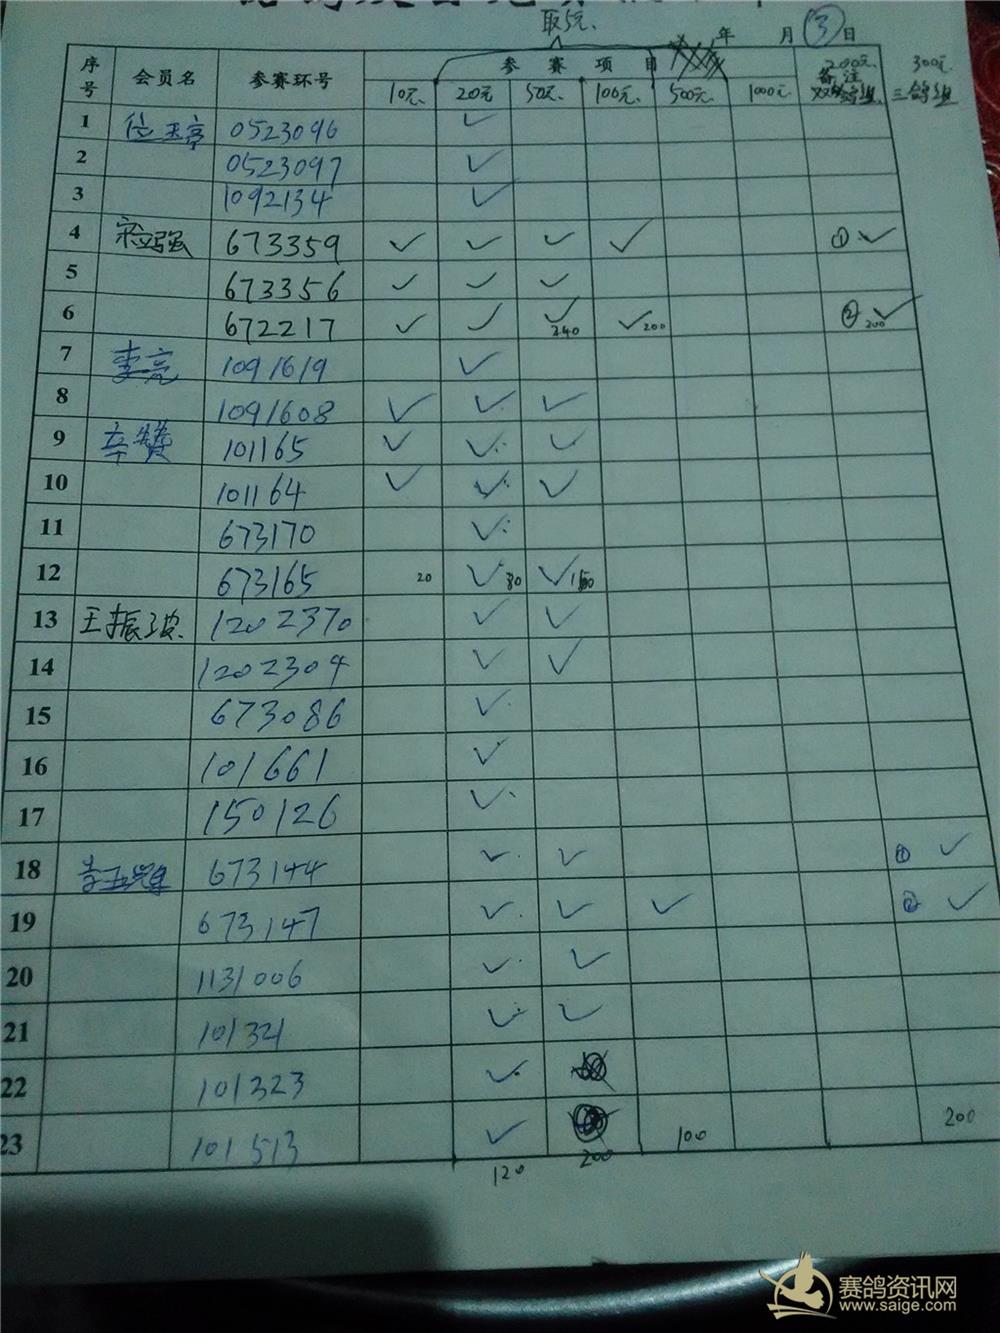 取5元.
年 月 3 日
序号 会员名 参赛环号 参赛项目 200元. 300元
10元. 20元 50元. 100元. 500元. 1000元 备注 三鸽组
1 位玉亭 0523096 ✓
2 0523097 ✓
3 1092134 ✓
4 强 673359 ✓ ✓ ✓ ✓ ① ✓
5 673356 ✓ ✓ ✓
6 672217 ✓ ✓ ✓ 240 ✓ 200 ② 200 ✓
7 李亮 1091619 ✓
8 1091608 ✓ ✓ ✓
9 辛赞 101165 ✓ ✓ ✓
10 101164 ✓ ✓ ✓
11 673170 ✓
12 673165 20 ✓ 80 ✓
13 王振波 1202370 ✓ ✓
14 1202304 ✓ ✓
15 673086 ✓
16 101661 ✓
17 150126 ✓
18 673144 ✓ ✓ ① ✓
19 673147 ✓ ✓ ✓ ② ✓
20 1131006 ✓ ✓
21 101321 ✓ ✓
22 101323 ✓
23 101513 ✓ 100 200
120 200
赛鸽资讯网
www.saige.com